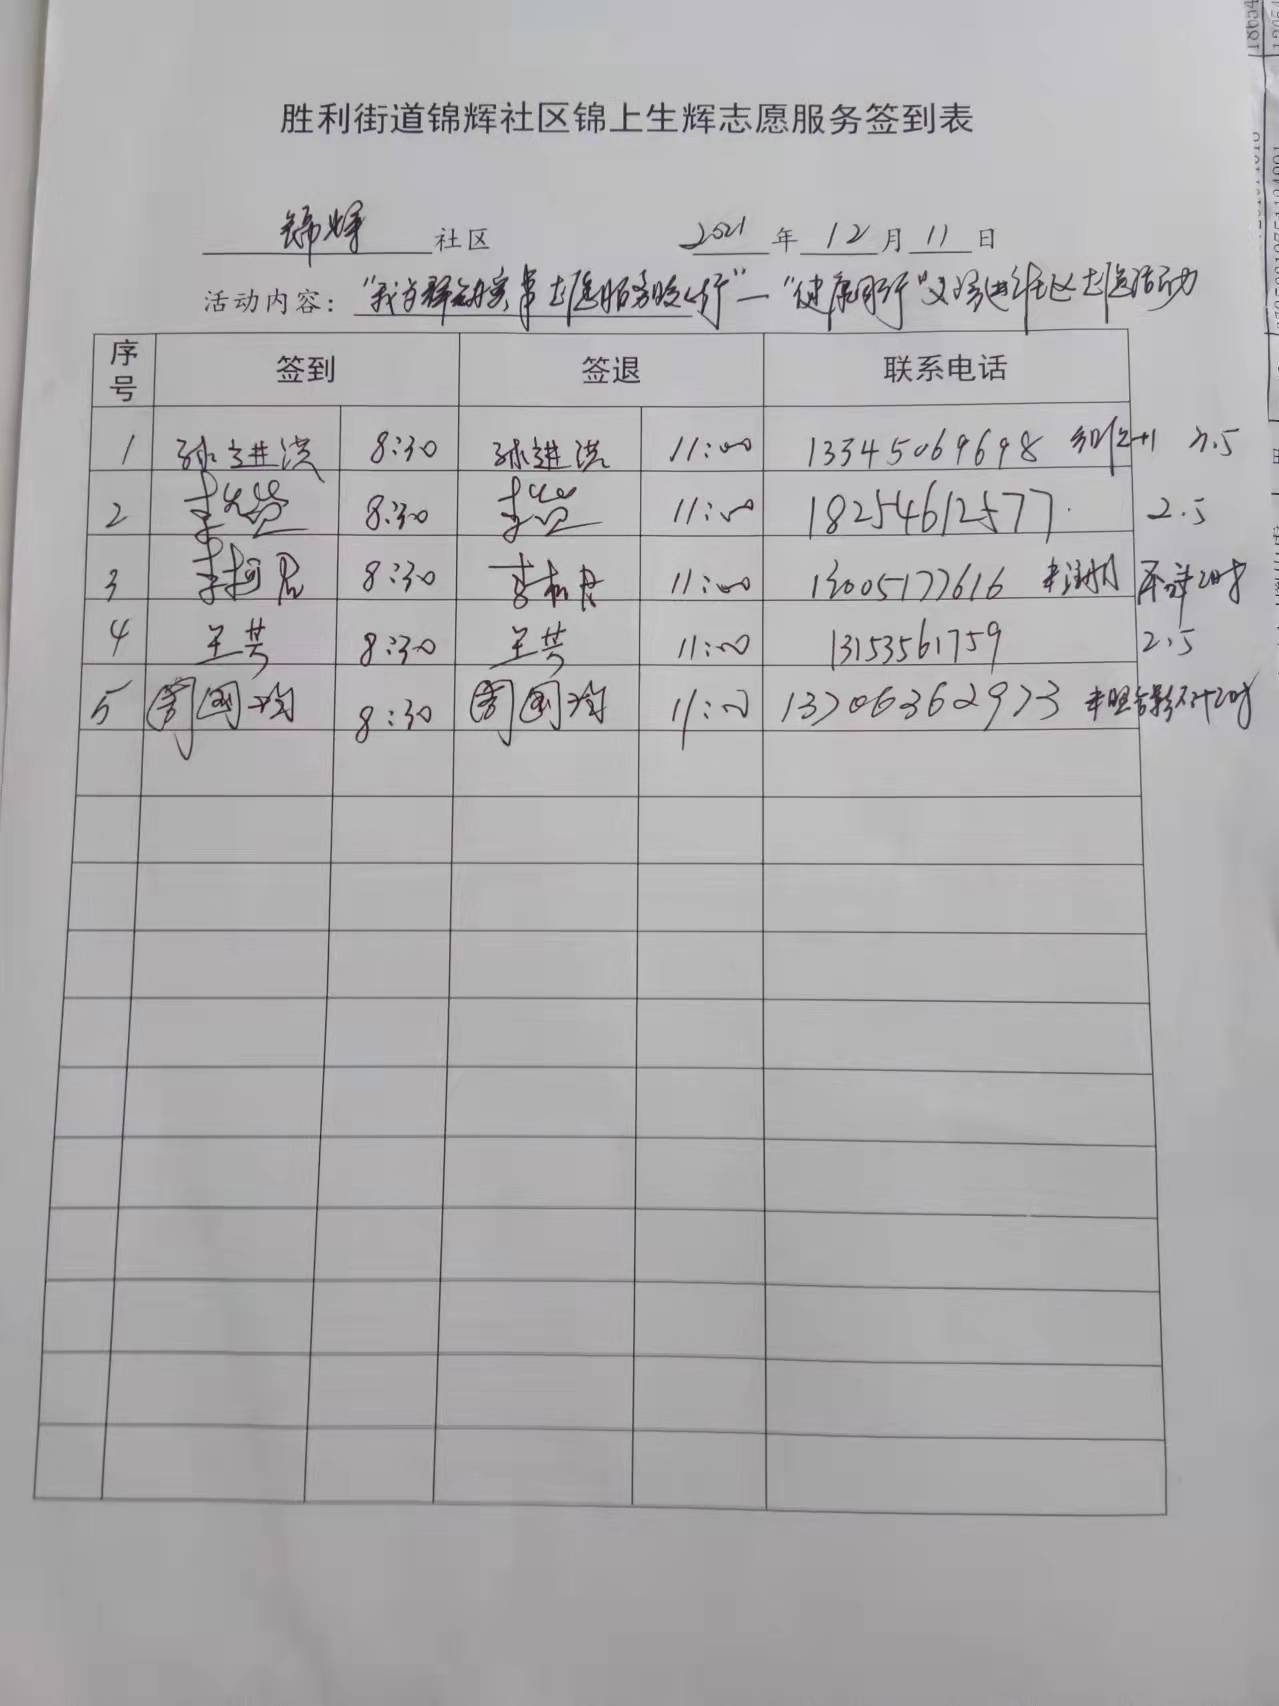 胜利街道锦辉社区锦上生辉志愿服务签到表
锦辉 社区 2021 年 12 月 11 日
活动内容："我为群众办实事志愿服务 行"—"健康同行"义诊进社区志愿活动
序号 签到 签退 联系电话
1 孙进洪 8:30 孙进洪 11:00 13345069698 +1 3.5
2 李 8:30 李 11:00 18254612577 2.5
3 李 君 8:30 李 君 11:00 13005177616 未注册 不计时
4 王芸 8:30 王芸 11:00 13153561759 2.5
5 周国 8:30 周国 11:00 13706362973 未照合影不计时